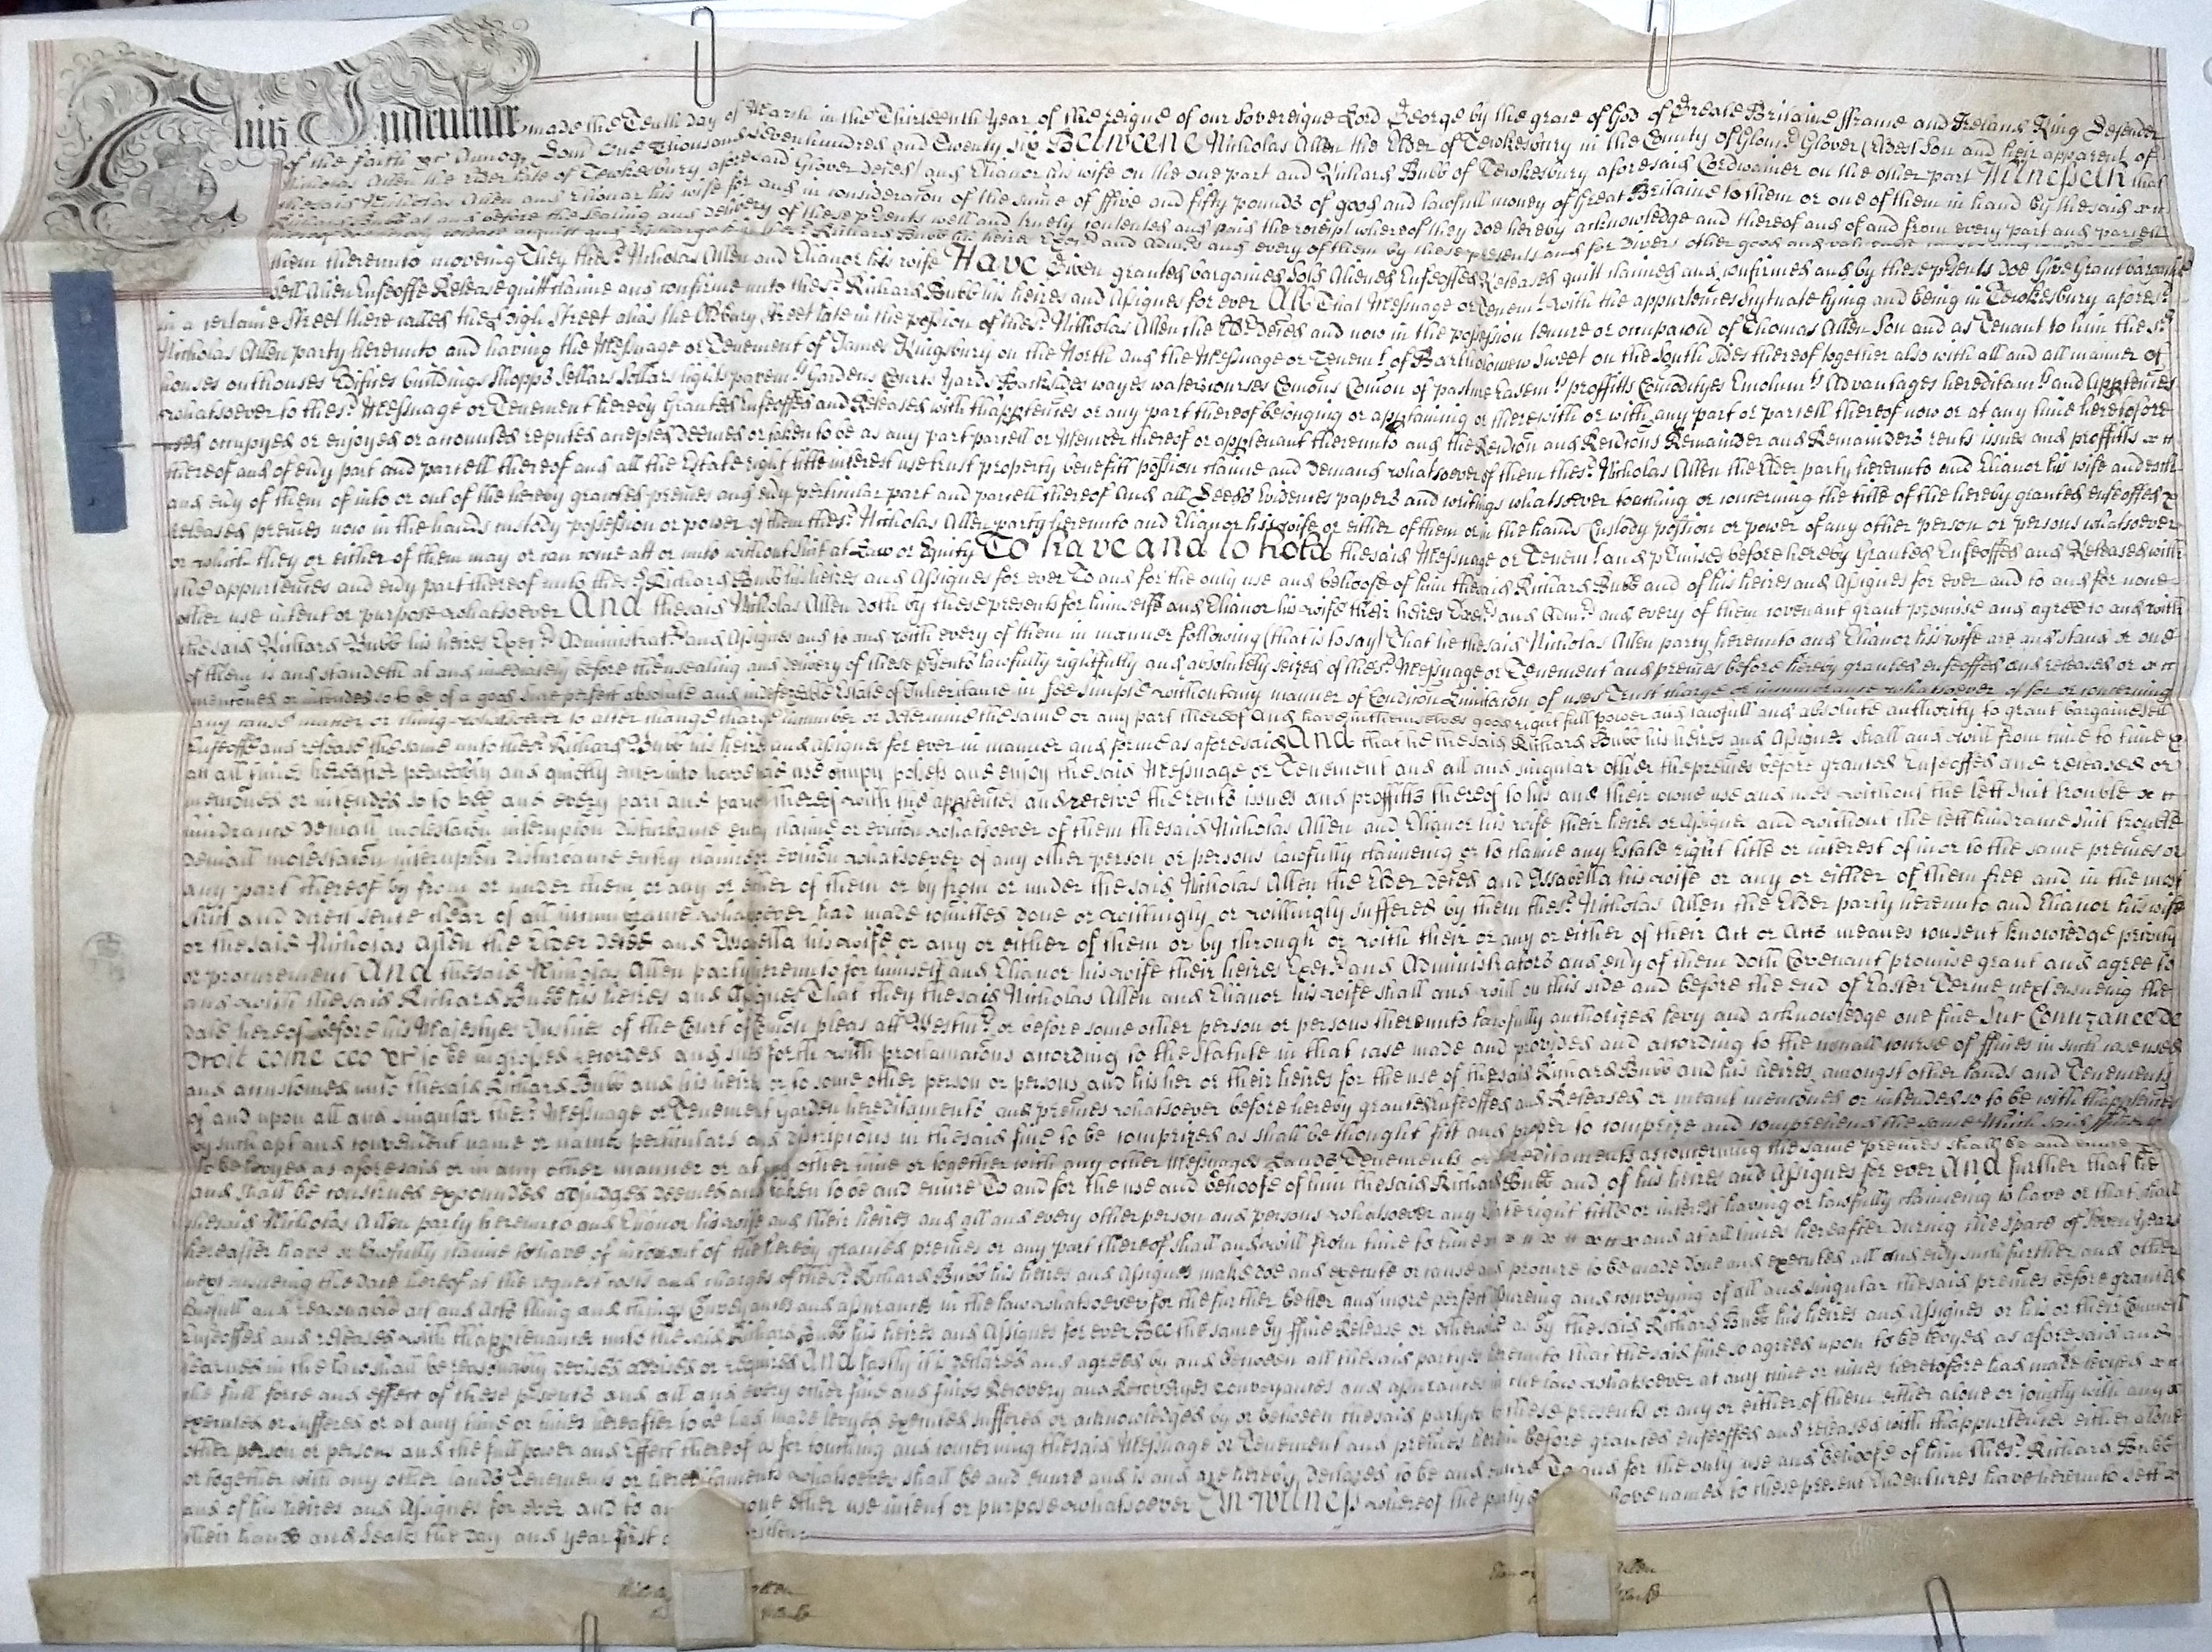 This Indenture made the Tenth day of March in the Thirteenth Year of the reigne of our Sovereigne Lord George by the grace of God of Greate Britaine ffrance and Ireland King Defender
of the faith &c Annoq Dom One Thousand Sevenhundred and Twenty Six Betweene Nicholas Allen the Elder of Tewkesbury in the County of Glouc Glover (Eldest Son and heir apparent of
Nicholas Allen the Elder late of Tewkesbury aforesaid Glover deced) and Elianor his wife on the one part and Richard Bubb of Tewkesbury aforesaid Cordwainer on the other part Witnesseth that
thesaid Nicholas Allen and Elianor his wife for and in consideration of the sume of ffive and fifty pounds of good and lawfull money of Great Britaine to them or one of them in hand by thesaid
Richard Bubb at and before the sealing and delivery of these psents well and truely contented and paid the receipt whereof they doe hereby acknowledge and thereof and of and from every part and parcell
thereof release acquitt and discharge Richard Bubb his heires and every of them by these presents and for divers other good and
them thereunto moveing They thes. Nicholas Allen and Elianor his wife Have Given granted bargained sold Aliened Enfeoffed Released quitt claimed and confirmed and by these psents Doe Give Grant bargaine
sell Alien Enfeoffe Release quitt claime and confirme unto thes. Richard Bubb his heires and Assignes for ever All That Messuage or Tenemt with the appurtences scytuate lying and being in Tewkesbury aforesd
in a certaine Street there called the High Street alias the Oldbury Street late in the possion of thes. Nicholas Allen the Elder deced and now in the possession tenure or occupacon of Thomas Allen Son and as Tenant to him the sd
Nicholas Allen party hereunto and having the Messuage or Tenement of James Kingsbury on the North and the Messuage or Tenemt of Bartholomew Sweet on the South sides thereof together also with all and all manner of
houses outhouses Edifices buildings Shopps Sellars Sollars lights pavemts Gardens Courts Yards Backsides wayes watercourses Comons Comon of pasture Easemts proffitts Comodityes Emolumts Advantages hereditamts and Appteces
whatsoever to thes. Messuage or Tenement hereby Granted Enfeoffed and Released with thapptences or any part thereof belonging or apptaining or therewith or with any part or parcell thereof now or at any time heretofore
used occupyed or enjoyed or accounted reputed accepted deemed or taken to be as any part parcell or Member thereof or apptenant thereunto and the Revcon and Revcons Remainder and Remainders rents issues and proffitts
thereof and of evy part and parcell thereof and all the Estate right title interest use trust property benefitt possion claime and demand whatsoever of them thes. Nicholas Allen the Elder party hereunto and Elianor his wife and eith
and evy of them of into or out of the hereby granted premes and evy perticular part and parcell thereof And all Deeds Evidences papers and writings whatsoever touching or concerning the title of the hereby granted enfeoffed &
released premes now in the hands custody possession or power of them thes. Nicholas Allen party hereunto and Elianor his wife or either of them or in the hands Custody possion or power of any other person or persons whatsoever
or which they or either of them may or can come att or unto without Suit at Law or Equity To have and to hold thesaid Messuage or Tenemt and premises before hereby Granted Enfeoffed and Released with
the appurtences and evy part thereof unto thes. Richard Bubb his heires and Assignes for ever To and for the only use and behoofe of him thesaid Richard Bubb and of his heires and Assignes for ever and to and for none
other use intent or purpose whatsoever And thesaid Nicholas Allen doth by these presents for himselfe and Elianor his wife their heires Execrs and Admrs and every of them covenant grant promise and agree to and with
thesaid Richard Bubb his heires Execrs Administratrs and Assignes and to and with every of them in manner following (that is to say) That he thesaid Nicholas Allen party hereunto and Elianor his wife are and stand or one
of them is and standeth at and imediately before thensealing and delivery of these psents lawfully rightfully and absolutely seized of thes. Messuage or Tenement and premes before hereby granted enfeoffed and released or
mentoned or intended so to be of a good sure perfect absolute and indefezible Estate of Inheritance in fee simple without any manner of Condicon Limitacon of uses Trust charge or incumbrance whatsoever of for or concerning
any cause matter or thing whatsoever to alter change charge incumber or determine the same or any part thereof And have in themselves good right full power and lawfull and absolute authority to grant bargaine sell
Enfeoffe and release the same unto thes. Richard Bubb his heires and Assignes for ever in manner and forme as aforesaid And that he the said Richard Bubb his heires and Assignes shall and will from time to time &
att all times hereafter peaceably and quietly enter into have hold use occupy possess and enjoy thesaid Messuage or Tenement and all and singular other the premes before granted Enfeoffed and released or
mentoned or intended so to bee and every part and parcell thereof with the apptences and receive the rents issues and proffitts thereof to his and their owne use and uses without the lett Suit trouble
hindrance deniall molestacon interupcon disturbance entry claime or evicon whatsoever of them thesaid Nicholas Allen and Elianor his wife their heires or Assignes and without the lett hindrance suit trouble
deniall molestacon interupcon disturbance entry claime or evicon whatsoever of any other person or persons lawfully claimeing or to claime any Estate right title or interest of in or to the same premes or
any part thereof by from or under them or any or either of them or by from or under thesaid Nicholas Allen the Elder deced and Issabella his wife or any or either of them free and in the most
strict and direct sence clear of all incumbrance whatsoever had made comitted done or willingly or willingly suffered by them thes. Nicholas Allen the Elder party hereunto and Elianor his wife
or thesaid Nicholas Allen the Elder deced and Issabella his wife or any or either of them or by through or with their or any or either of their Act or Acts meanes consent knowledge privity
or procurement And thesaid Nicholas Allen party hereunto for himself and Elianor his wife their heires Execrs and Administrators and evy of them doth Covenant promise grant and agree to
and with thesaid Richard Bubb his heires and Assignes That they thesaid Nicholas Allen and Elianor his wife shall and will on this side and before the end of Easter Terme next ensueing the
date hereof before his Majestyes Justices of the Court of Comon pleas att Westmr or before some other person or persons thereunto lawfully authorized levy and acknowledge one fine Sur Conuzance De
Droit come ceo &c to be ingrossed recorded and sued forth with proclamacons according to the Statute in that case made and provided and according to the usuall course of ffines in such case used
and accustomed unto thesaid Richard Bubb and his heires or to some other person or persons and his her or their heires for the use of thesaid Richard Bubb and his heires amongst other lands and Tenements
of and upon all and singular thes. Messuage or Tenement Garden hereditaments and premes whatsoever before hereby granted enfeoffed and Released or meant mentoned or intended so to be with thapptences
by such apt and convenient name or names perticulars and discripcons in thesaid fine to be comprized as shall be thought fitt and proper to comprize and comprehend the same Which said ffine
to be levyed as aforesaid or in any other manner or at any other time or together with any other Messuages Lands Tenements or hereditaments as concerning the same premes shall be and enure
and shall be construed expounded adjudged deemed and taken to be and enure To and for the use and behoofe of him thesaid Richard Bubb and of his heires and Assignes for ever And further that he
thesaid Nicholas Allen party hereunto and Elianor his wife and their heires and all and every other person and persons whatsoever any Estate right title or interest having or lawfully claimeing to have or that shall
hereafter have or lawfully claime to have of in to or out of the hereby granted premes or any part thereof shall and will from time to time and at all times hereafter during the space of Seven Years
next ensueing the date hereof at the request costs and charges of thes. Richard Bubb his heires and Assignes make doe and execute or cause and procure to be made done and executed all and evy such further and other
lawfull and reasonable act and acts thing and things Conveyances and assurances in the law whatsoever for the further better and more perfect assureing and conveying of all and singular thesaid premes before granted
Enfeoffed and released with thapptenance unto the said Richard Bubb his heires and Assignes for ever Bee the same by ffine Release or otherwise as by thesaid Richard Bubb his heires and Assignes or his or their Councell
learned in the law shall be reasonably devised advised or required And lastly it is declared and agreed by and between all thesaid partyes hereunto that the said fine so agreed upon to be levyed as aforesaid and
the full force and effect of these psents and all and every other fine and fines Recovery and Recoveryes conveyances and assurances in the law whatsoever at any time or times heretofore had made levyed
executed or suffered or at any time or times hereafter to be had made levyed executed suffered or acknowledged by or between thesaid partyes to these presents or any or either of them either alone or joyntly with any
other person or persons and the full power and Effect thereof as for touching and concerning thesaid Messuage or Tenement and premes herein before granted enfeoffed and released with thappurtences either alone
or together with any other lands Tenements or hereditaments whatsoever shall be and enure and is and are hereby declared to be and enure To and for the only use and behoofe of him thes. Richard Bubb
and of his heires and Assignes for ever and to and none other use intent or purpose whatsoever In Witness whereof the partyes above named to these present Indentures have hereunto sett
their hands and Seals the day and year first